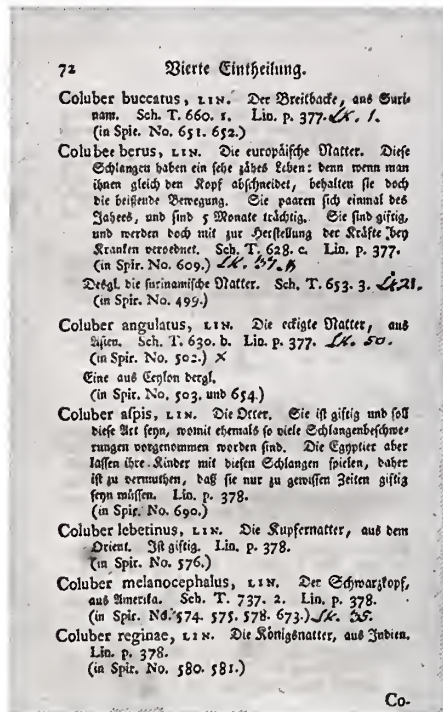 72 Vierte Eintheilung.
Coluber buccatus, LIN. Der Breitbacke, aus Suri-
nam. Sch. T. 660. 1. Lin. p. 377. LK. 1.
(in Spir. No. 651. 652.)
Coluber berus, LIN. Die europäische Natter. Diese
Schlangen haben ein sehr zähes Leben: denn wenn man
ihnen gleich den Kopf abschneidet, behalten sie doch
die beißende Bewegung. Sie paaren sich einmal des
Jahres, und sind 5 Monate trächtig. Sie sind giftig,
und werden doch mit zur Herstellung der Kräfte bey
Kranken verordnet. Sch. T. 628. c. Lin. p. 377.
(in Spir. No. 609.) LK.
Desgl. die surinamische Natter. Sch. T. 653. 3. LK 21.
(in Spir. No. 499.)
Coluber angulatus, LIN. Die eckigte Natter, aus
Asien. Sch. T. 630. b. Lin. p. 377. LK. 50.
(in Spir. No. 502.) x
Eine aus Ceylon dergl.
(in Spir. No. 503. und 654.)
Coluber aspis, LIN. Die Otter. Sie ist giftig und soll
diese Art seyn, womit ehemals so viele Schlangenbeschwe-
rungen vorgenommen worden sind. Die Egyptier aber
lassen ihre Kinder mit diesen Schlangen spielen, daher
ist zu vermuthen, daß sie nur zu gewissen Zeiten giftig
seyn müssen. Lin. p. 378.
(in Spir. No. 690.)
Coluber lebetinus, LIN. Die Kupfernatter, aus dem
Orient. Ist giftig. Lin. p. 378.
(in Spir. No. 576.)
Coluber melanocephalus, LIN. Der Schwarzkopf,
aus Amerika. Sch. T. 737. 2. Lin. p. 378.
(in Spir. No. 574. 575. 578. 673.) LK. 35.
Coluber reginae, LIN. Die Königsnatter, aus Indien.
Lin. p. 378.
(in Spir. No. 580. 581.)
Co-